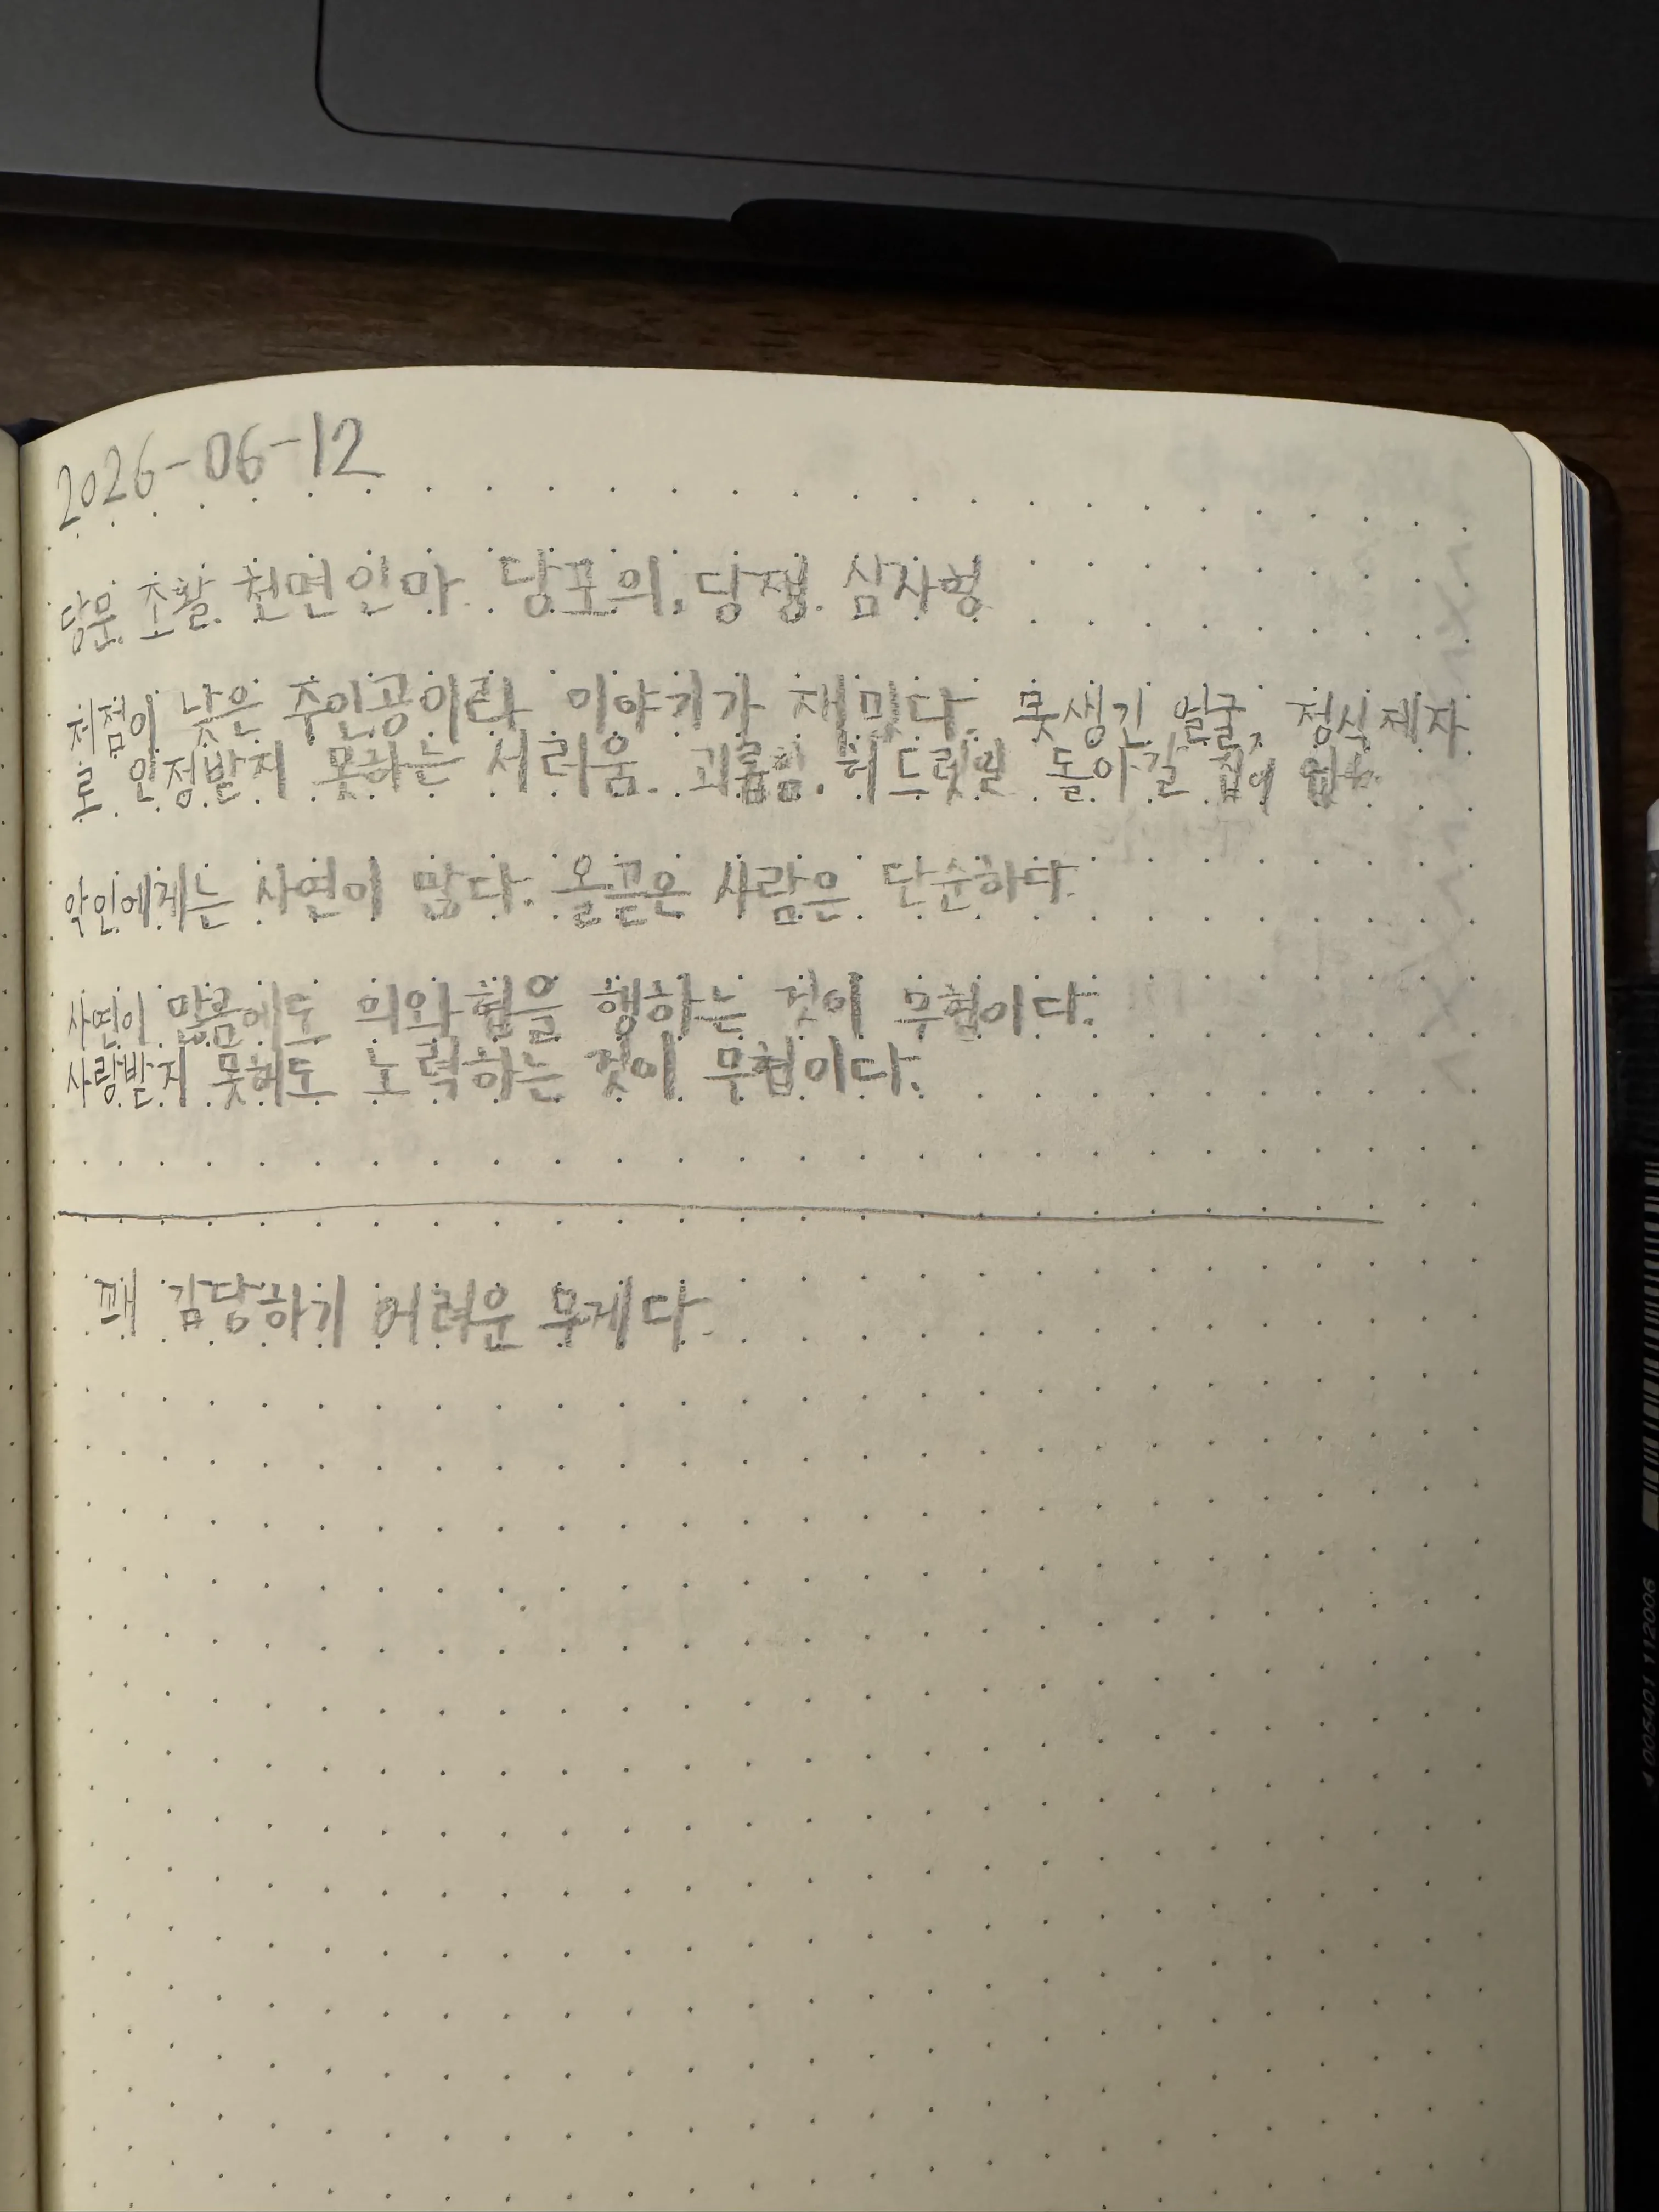 2026-06-12
당문 조활 천면인마 당포의, 당쟁. 삼사형
저점이 낮은 주인공이라 이야기가 재밌다. 못생긴 얼굴, 정식제자
로 인정받지 못하는 서러움. 괴롭힘. 허드렛일 돌아갈 집이 없는
악인에게는 사연이 많다. 올곧은 사람은 단순하다.
사연이 많음에도 의와 협을 행하는 것이 무협이다.
사랑받지 못해도 노력하는 것이 무협이다.
꽤 감당하기 어려운 무게다.
4 005401 112006